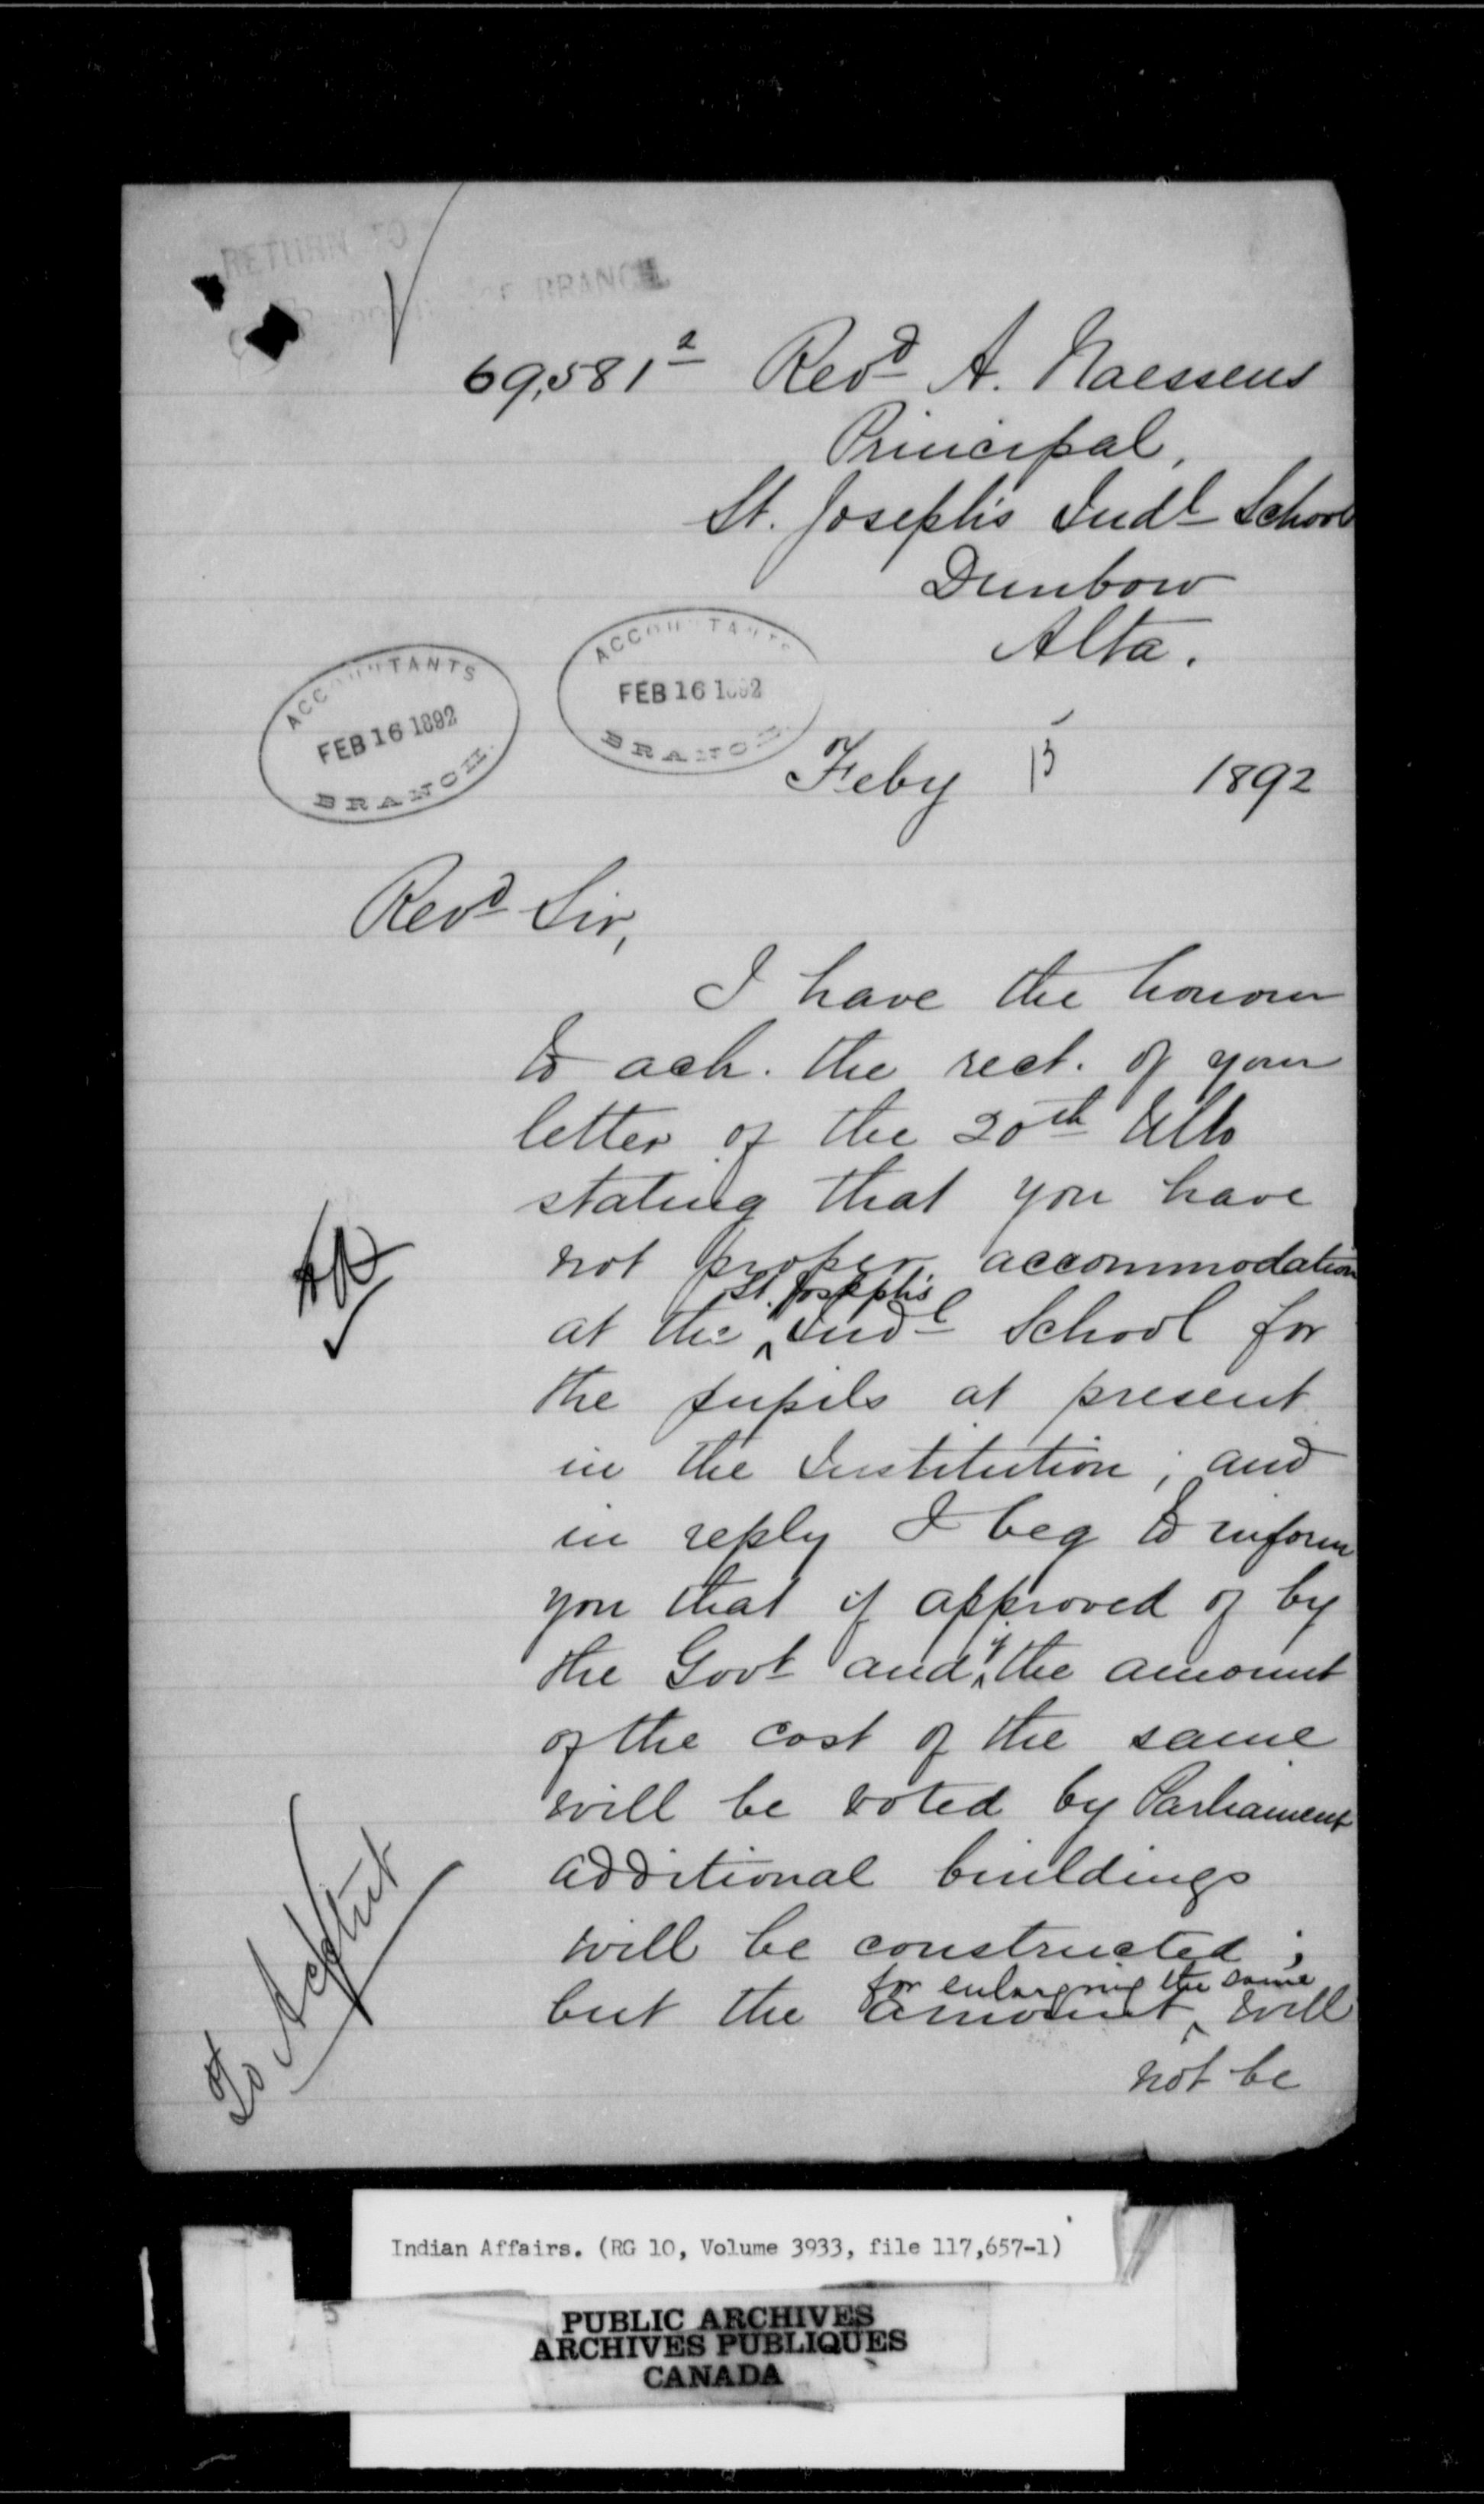 RETURN TO
OF BRANCH
69,581² Revd A. Naessens
Principal,
St. Joseph's Indl School
Dunbow
Alta.
ACCOUNTANTS
FEB 16 1892
BRANCH.
ACCOUNTANTS
FEB 16 1892
BRANCH.
Feby 15 1892
Revd Sir,
I have the honour
to ack. the rect. of your
letter of the 20th Ulto
stating that you have
not proper accommodation
St. Joseph's
at the ^ Indl School for
the pupils at present
in the Institution; and
in reply I beg to inform
you that if approved of by
the Govt and ^if the amount
of the cost of the same
will be voted by Parliament
additional buildings
will be constructed;
for enlarging the same
but the amount ^ will
not be
Indian Affairs. (RG 10, Volume 3933, file 117,657-1)
PUBLIC ARCHIVES
ARCHIVES PUBLIQUES
CANADA